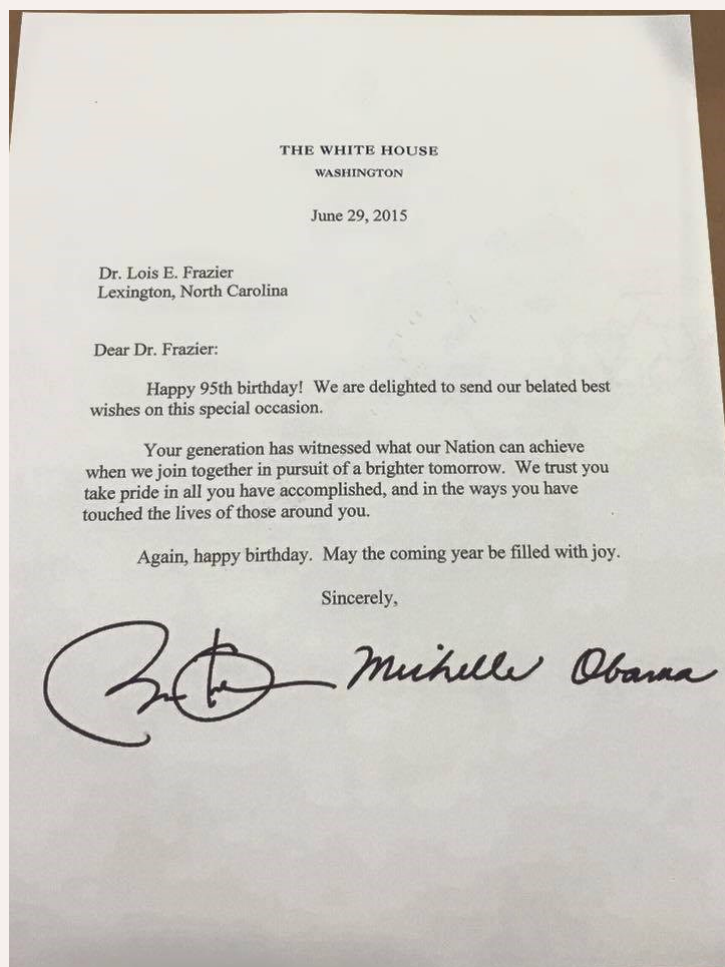 THE WHITE HOUSE
WASHINGTON
June 29, 2015
Dr. Lois E. Frazier
Lexington, North Carolina
Dear Dr. Frazier:
Happy 95th birthday! We are delighted to send our belated best
wishes on this special occasion.
Your generation has witnessed what our Nation can achieve
when we join together in pursuit of a brighter tomorrow. We trust you
take pride in all you have accomplished, and in the ways you have
touched the lives of those around you.
Again, happy birthday. May the coming year be filled with joy.
Sincerely,
Michelle Obama